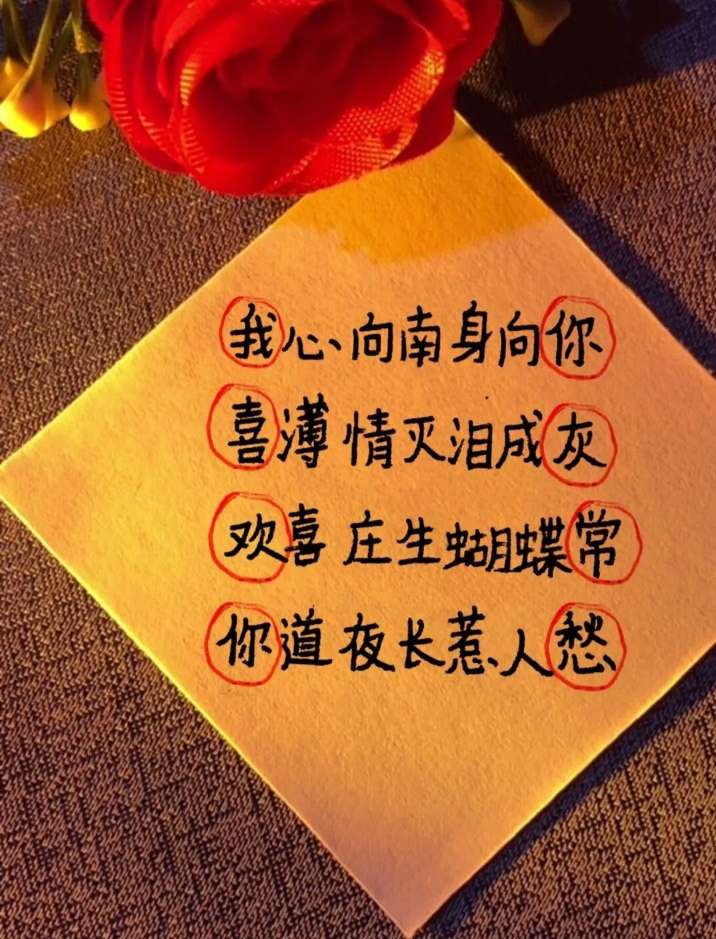 我心向南身向你
喜薄情灭泪成灰
欢喜庄生蝴蝶常
你道夜长惹人愁